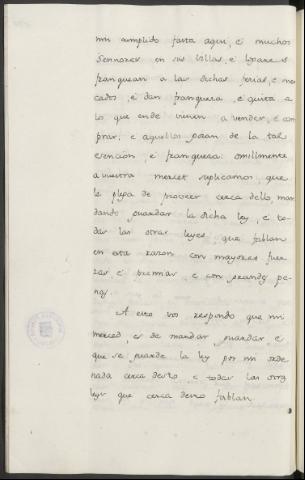 nin complido fasta aqui, é muchos
Sennores en sus Villas, é Logares
franquean a las dichas ferias, é mer
cados, é dan franqueza, é quita a
lo que ende vienen a vender, é com
prar; e aquellos gozan de la tal
esencion, é franqueza: omillmente
a vuestra merced suplicamos, que
le plega de proveer cerca dello man
dando guardar la dicha ley, e to-
das las otras leyes, que fablan
en esta razon con mayores fuer
zas é premias, e con grandes pe-
nas.
A esto vos respondo que mi
merced es de mandar guardar, é
que se guarde la ley por mi orde
nada cerca desto, e todas las otras
leyes que cerca desto fablan.